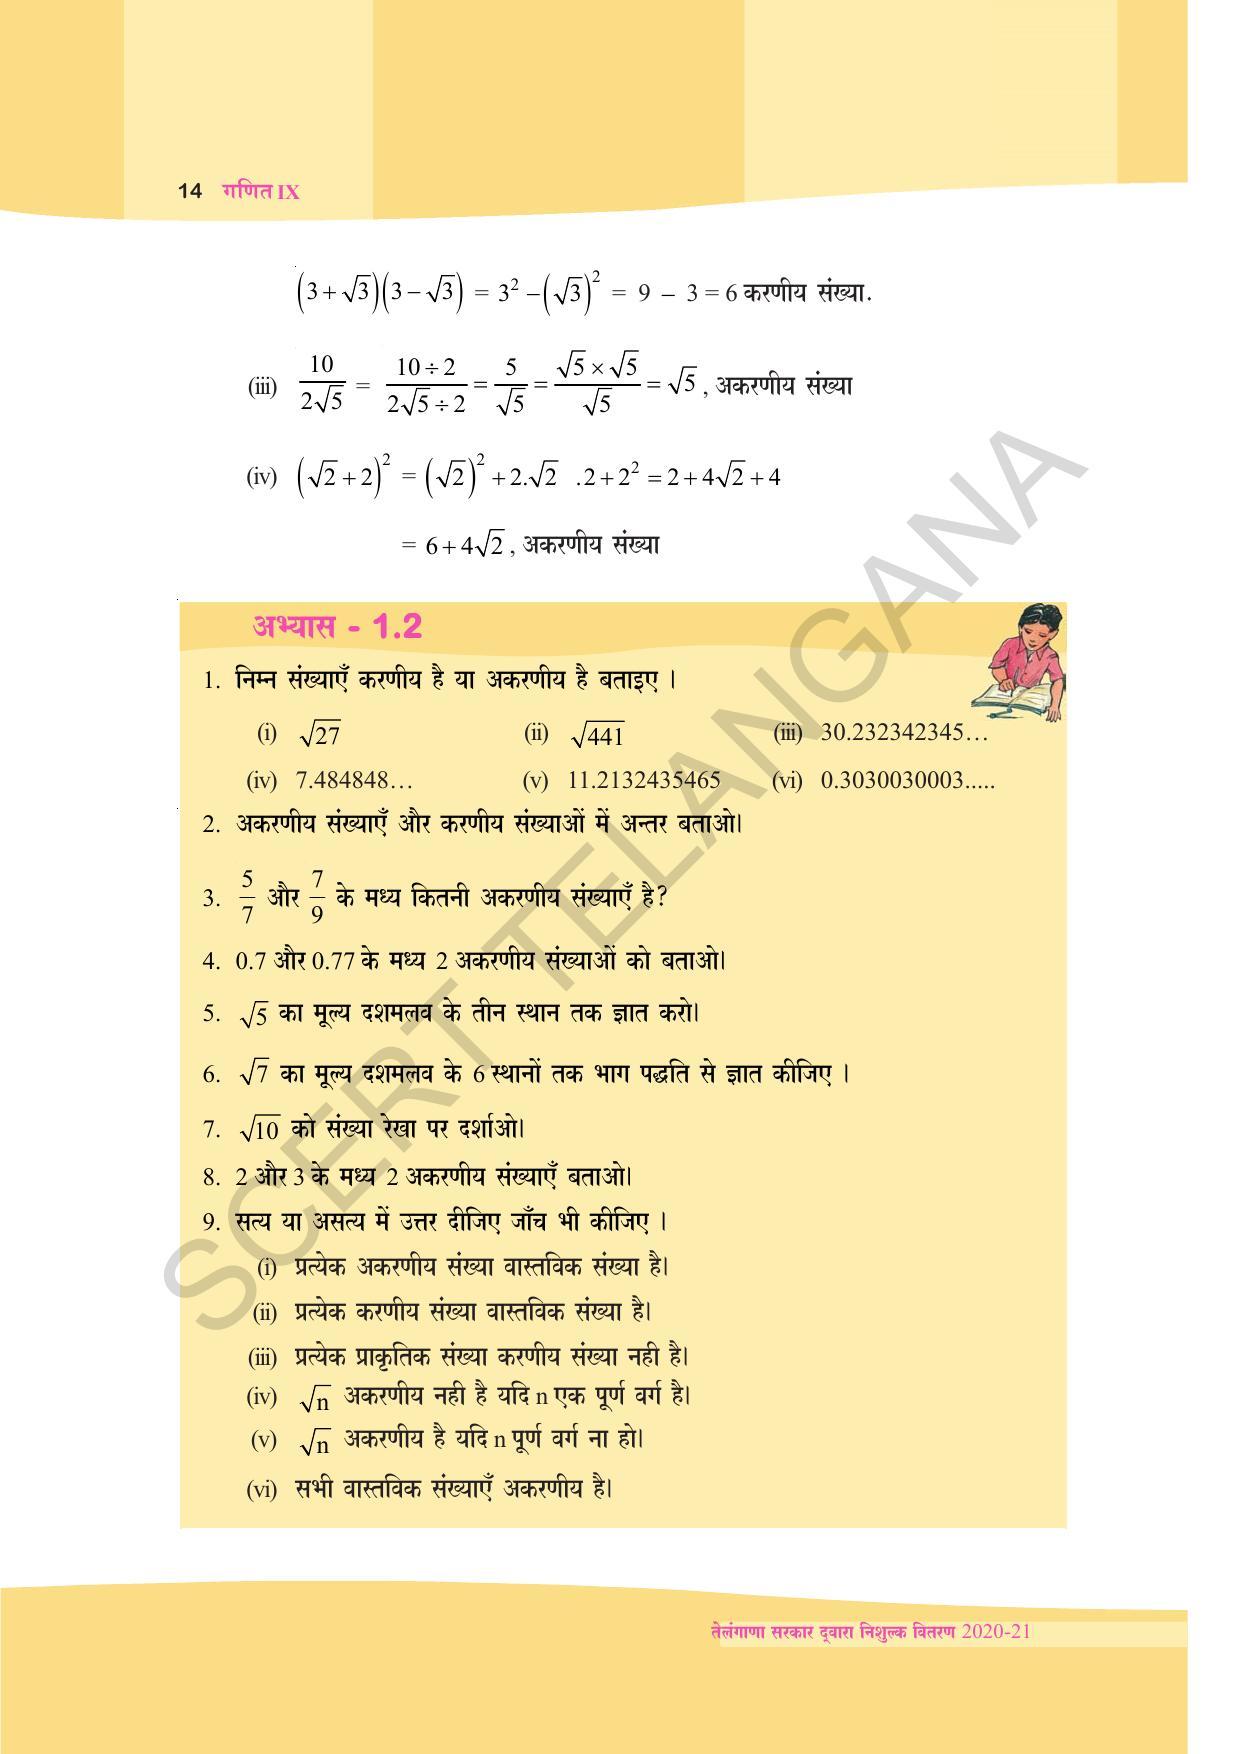 14 गणित IX
(3 + √3)(3 − √3) = 3² − (√3)² = 9 – 3 = 6 करणीय संख्या.
(iii) 10/2√5 = 10 ÷ 2/2√5 ÷ 2 = 5/√5 = √5 × √5/√5 = √5 , अकरणीय संख्या
(iv) (√2 + 2)² = (√2)² + 2.√2 .2 + 2² = 2 + 4√2 + 4
= 6 + 4√2 , अकरणीय संख्या
अभ्यास - 1.2
1. निम्न संख्याएँ करणीय है या अकरणीय है बताइए ।
(i) √27 (ii) √441 (iii) 30.232342345…
(iv) 7.484848… (v) 11.2132435465 (vi) 0.3030030003.....
2. अकरणीय संख्याएँ और करणीय संख्याओं में अन्तर बताओ।
3. 5/7 और 7/9 के मध्य कितनी अकरणीय संख्याएँ है?
4. 0.7 और 0.77 के मध्य 2 अकरणीय संख्याओं को बताओ।
5. √5 का मूल्य दशमलव के तीन स्थान तक ज्ञात करो।
6. √7 का मूल्य दशमलव के 6 स्थानों तक भाग पद्धति से ज्ञात कीजिए ।
7. √10 को संख्या रेखा पर दर्शाओ।
8. 2 और 3 के मध्य 2 अकरणीय संख्याएँ बताओ।
9. सत्य या असत्य में उत्तर दीजिए जाँच भी कीजिए ।
(i) प्रत्येक अकरणीय संख्या वास्तविक संख्या है।
(ii) प्रत्येक करणीय संख्या वास्तविक संख्या है।
(iii) प्रत्येक प्राकृतिक संख्या करणीय संख्या नही है।
(iv) √n अकरणीय नही है यदि n एक पूर्ण वर्ग है।
(v) √n अकरणीय है यदि n पूर्ण वर्ग ना हो।
(vi) सभी वास्तविक संख्याएँ अकरणीय है।
SCERT TELANGANA
तेलंगाणा सरकार द्वारा निशुल्क वितरण 2020-21